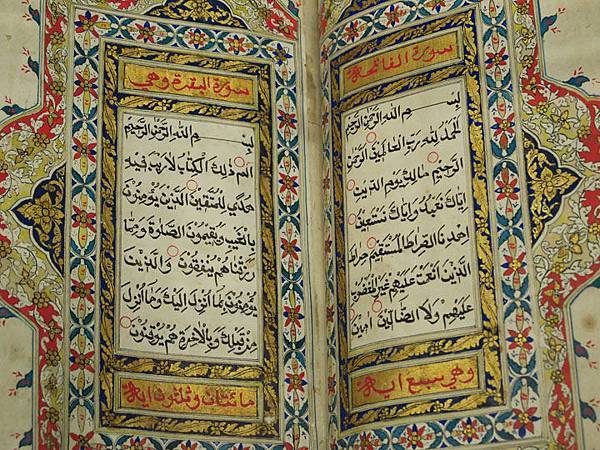 سورة الفاتحة
بسم الله الرحمن الرحيم
الحمد لله رب العالمين الرحمن
الرحيم مالك يوم الدين
اياك نعبد واياك نستعين
اهدنا الصراط المستقيم صراط
الذين انعمت عليهم غير المغضوب
عليهم ولا الضالين امين
وهي سبع اية
سورة البقرة وهي
بسم الله الرحمن الرحيم
الم ذلك الكتاب لا ريب فيه
هدي للمتقين الذين يؤمنون
بالغيب ويقيمون الصلاة ومما
رزقناهم ينفقون والذين
يؤمنون بما انزل اليك وما انزل
من قبلك وبالاخرة هم يوقنون
مائتان اية